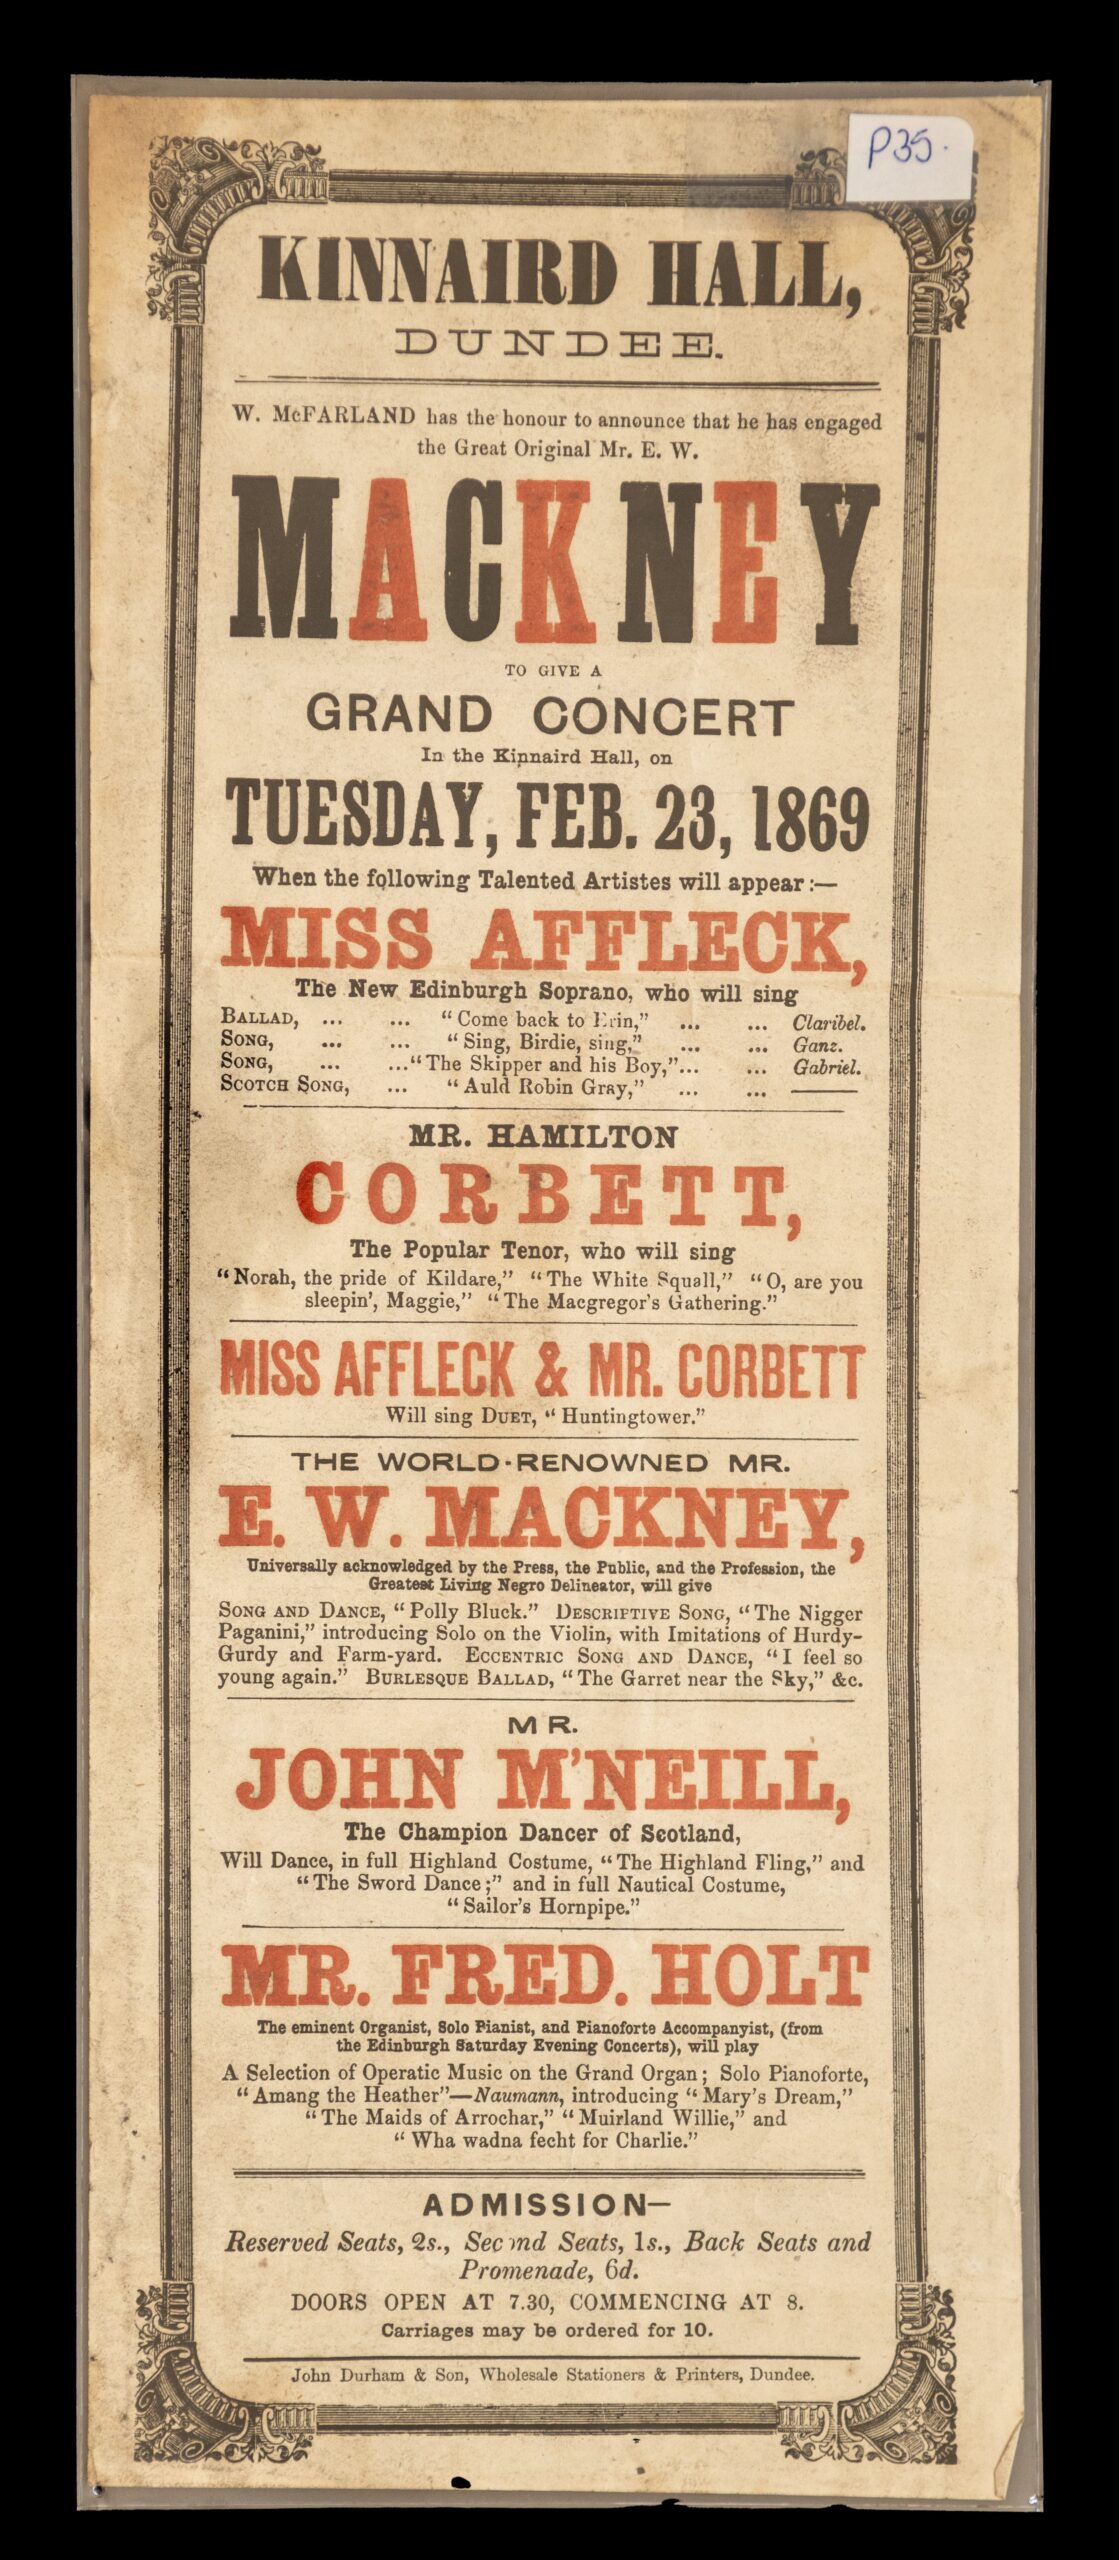 P35.
KINNAIRD HALL,
DUNDEE.
W. McFARLAND has the honour to announce that he has engaged
the Great Original Mr. E. W.
MACKNEY
TO GIVE A
GRAND CONCERT
In the Kinnaird Hall, on
TUESDAY, FEB. 23, 1869
When the following Talented Artistes will appear:—
MISS AFFLECK,
The New Edinburgh Soprano, who will sing
BALLAD, ... ... "Come back to Erin," ... ... Claribel.
SONG, ... ... "Sing, Birdie, sing," ... ... Ganz.
SONG, ... ..."The Skipper and his Boy,"... ... Gabriel.
SCOTCH SONG, ... "Auld Robin Gray," ... ... ———
MR. HAMILTON
CORBETT,
The Popular Tenor, who will sing
"Norah, the pride of Kildare," "The White Squall," "O, are you
sleepin', Maggie," "The Macgregor's Gathering."
MISS AFFLECK & MR. CORBETT
Will sing DUET, "Huntingtower."
THE WORLD-RENOWNED MR.
E. W. MACKNEY,
Universally acknowledged by the Press, the Public, and the Profession, the
Greatest Living Negro Delineator, will give
SONG AND DANCE, "Polly Bluck." DESCRIPTIVE SONG, "The Nigger
Paganini," introducing Solo on the Violin, with Imitations of Hurdy-
Gurdy and Farm-yard. ECCENTRIC SONG AND DANCE, "I feel so
young again." BURLESQUE BALLAD, "The Garret near the Sky," &c.
MR.
JOHN M'NEILL,
The Champion Dancer of Scotland,
Will Dance, in full Highland Costume, "The Highland Fling," and
"The Sword Dance;" and in full Nautical Costume,
"Sailor's Hornpipe."
MR. FRED. HOLT
The eminent Organist, Solo Pianist, and Pianoforte Accompanyist, (from
the Edinburgh Saturday Evening Concerts), will play
A Selection of Operatic Music on the Grand Organ; Solo Pianoforte,
"Amang the Heather"—Naumann, introducing "Mary's Dream,"
"The Maids of Arrochar," "Muirland Willie," and
"Wha wadna fecht for Charlie."
ADMISSION—
Reserved Seats, 2s., Second Seats, 1s., Back Seats and
Promenade, 6d.
DOORS OPEN AT 7.30, COMMENCING AT 8.
Carriages may be ordered for 10.
John Durham & Son, Wholesale Stationers & Printers, Dundee.